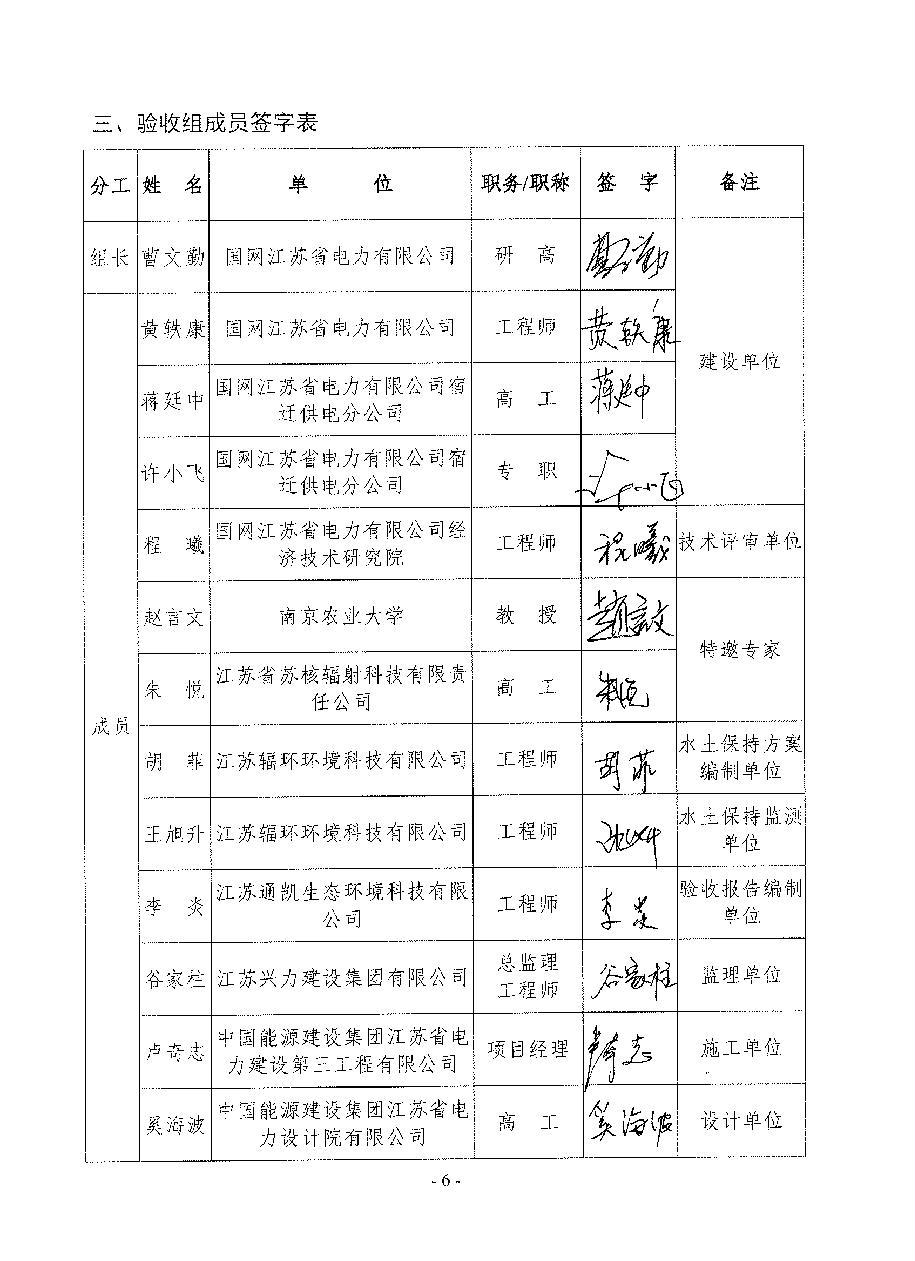 三、验收组成员签字表
分工 姓 名 单 位 职务/职称 签 字 备注
组长 曹文勤 国网江苏省电力有限公司 研 高
黄轶康 国网江苏省电力有限公司 工程师 黄轶康
建设单位
蒋廷中 国网江苏省电力有限公司宿
迁供电分公司 高 工 蒋廷中
许小飞 国网江苏省电力有限公司宿
迁供电分公司 专 职
程 曦 国网江苏省电力有限公司经
济技术研究院 工程师 程曦 技术评审单位
赵言文 南京农业大学 教 授 赵言文
特邀专家
朱 悦 江苏省苏核辐射科技有限责
任公司 高 工
成员
胡 菲 江苏辐环环境科技有限公司 工程师 胡菲 水土保持方案
编制单位
王旭升 江苏辐环环境科技有限公司 工程师 水土保持监测
单位
李 炎 江苏通凯生态环境科技有限
公司 工程师 李炎 验收报告编制
单位
谷家柱 江苏兴力建设集团有限公司 总监理
工程师 谷家柱 监理单位
卢奇志 中国能源建设集团江苏省电
力建设第三工程有限公司 项目经理 施工单位
奚海波 中国能源建设集团江苏省电
力设计院有限公司 高 工 奚海波 设计单位
- 6 -